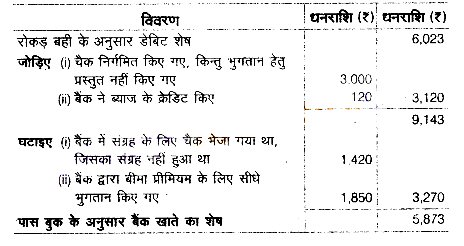 विवरण धनराशि (₹) धनराशि (₹)
रोकड़ बही के अनुसार डेबिट शेष 6,023
जोड़िए (i) चैक निर्गमित किए गए, किन्तु भुगतान हेतु
प्रस्तुत नहीं किए गए 3,000
(ii) बैंक ने ब्याज के क्रेडिट किए 120 3,120
9,143
घटाइए (i) बैंक में संग्रह के लिए चैक भेजा गया था,
जिसका संग्रह नहीं हुआ था 1,420
(ii) बैंक द्वारा बीमा प्रीमियम के लिए सीधे
भुगतान किए गए 1,850 3,270
पास बुक के अनुसार बैंक खाते का शेष 5,873